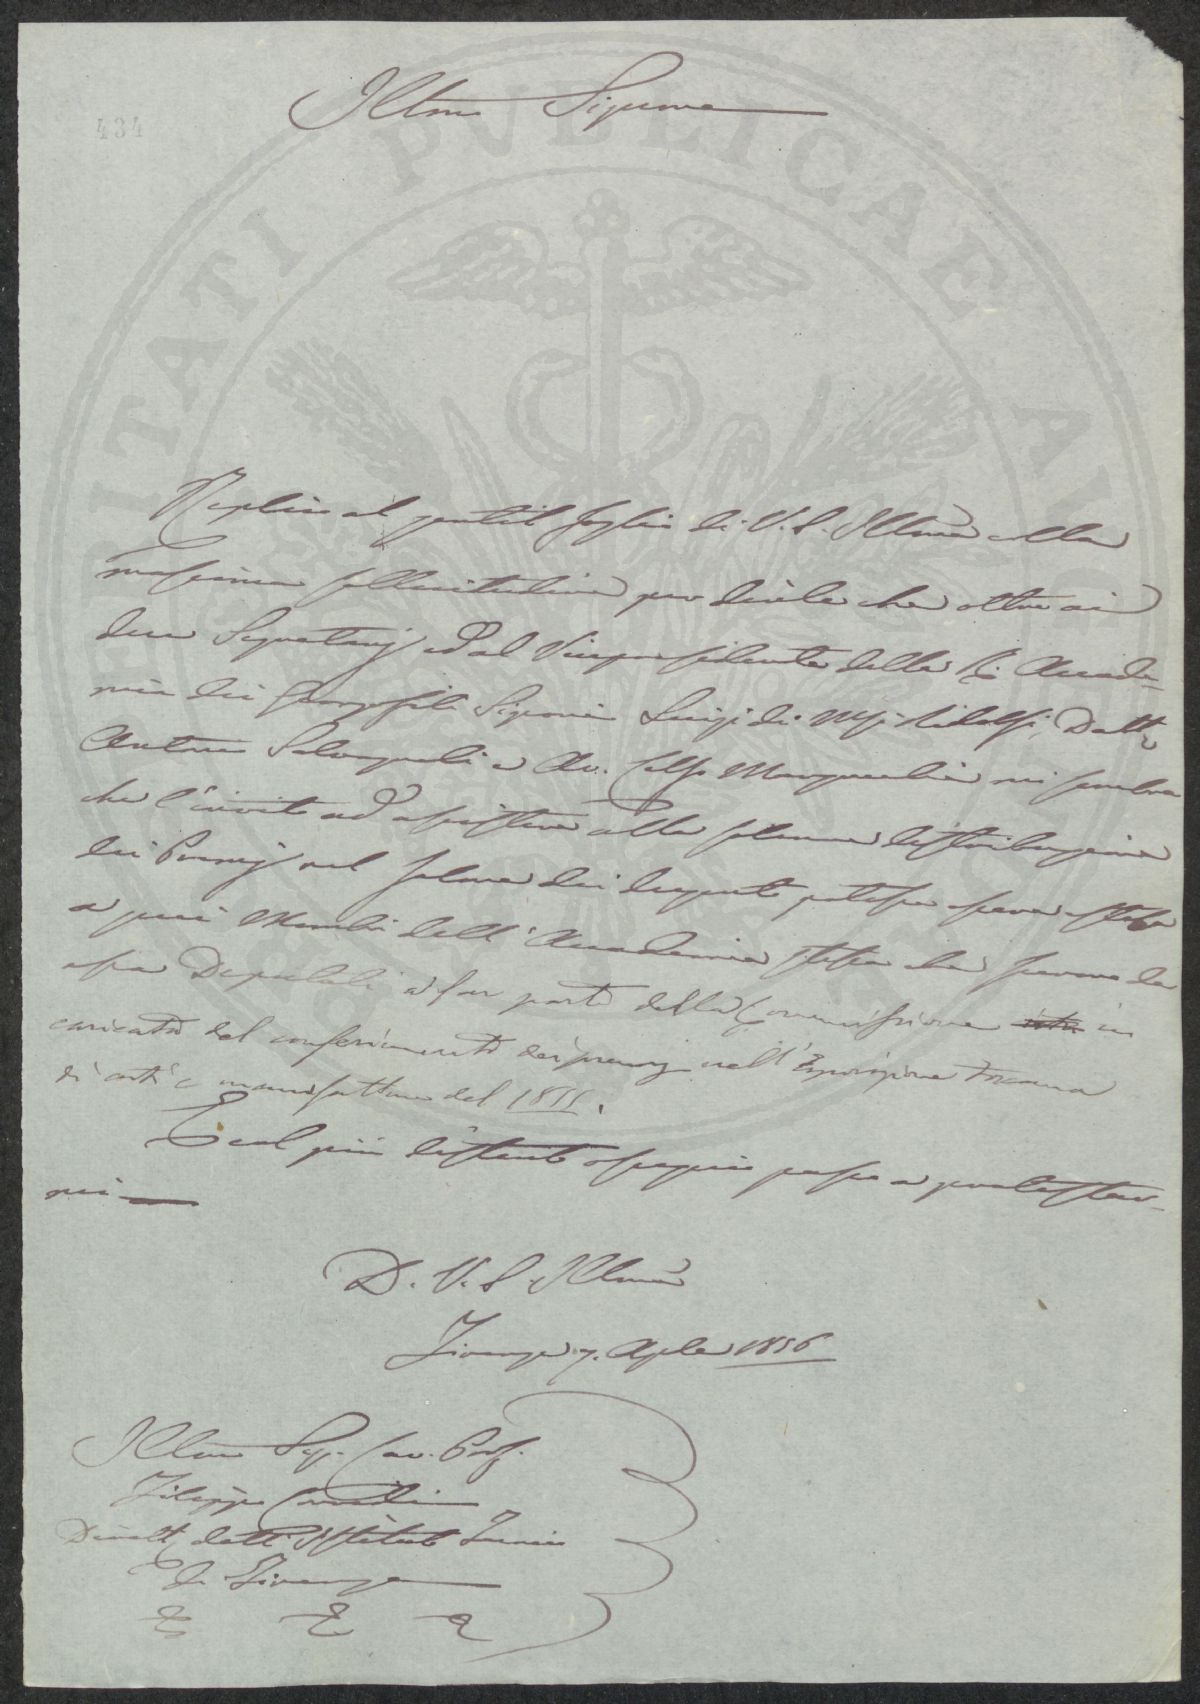 434
Illmo Signore
Replico al gentil foglio di V. S. Illma colla
massima sollecitudine per dirle che oltre ai
due Segretarj ed al Vicepresidente della R. Accade-
mia dei Georgofili Signori Luigi de Mss Ridolfi, Dott.
Antonio Salvagnoli e Av. Celso Marzucchi mi sembra
che l'invito ad assistere alla solenne distribuzione
dei Premj nel Salone dei dugento potesse essere esteso
a più Membri dell' Accademia stessa che furono da
essa Deputati a far parte della Commissione in
caricata del conferimento dei premj nell' Esposizione Toscana
di arti e manifatture del
E col più distinto ossequio passo a protestar-
mi
D. V. S. Illma
Firenze 7. Aprile 1856
Illmo Sig. Cav. Prof.
Filippo Corridi
Dirett. dell' Istituto Tecnico
di Firenze